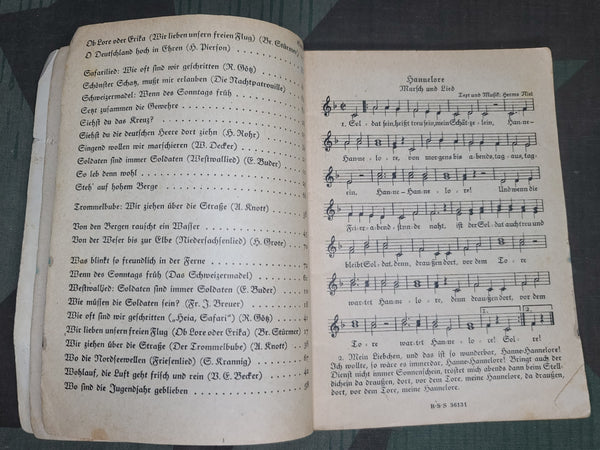 Ob Lore oder Erika (Wir lieben unsern freien Flug) (Br. Stürmer)
O Deutschland hoch in Ehren (H. Pierson)
Safarilied: Wie oft sind wir geschritten (R. Götz)
Schönster Schatz, mußt mir erlauben (Die Nachtpatrouille)
Schweizermadel: Wenn des Sonntags früh
Setzt zusammen die Gewehre
Siehst du das Kreuz?
Siehst du die deutschen Heere dort ziehn (H. Rohr)
Singend wollen wir marschieren (W. Decker)
Soldaten sind immer Soldaten (Westwallied) (E. Buder)
So leb denn wohl
Steh' auf hohem Berge
Trommelbube: Wir ziehen über die Straße (A. Knott)
Von den Bergen rauscht ein Wasser
Von der Weser bis zur Elbe (Niedersachsenlied) (H. Grote)
Was blinkt so freundlich in der Ferne
Wenn des Sonntags früh (Das Schweizermadel)
Westwallied: Soldaten sind immer Soldaten (E. Buder)
Wie müssen die Soldaten sein? (Fr. J. Breuer)
Wie oft sind wir geschritten („Heia, Safari") (R. Götz)
Wir lieben unsern freien Flug (Ob Lore oder Erika) (Br. Stürmer)
Wir ziehen über die Straße (Der Trommelbube) (A. Knott)
Wo die Nordseewellen (Friesenlied) (S. Krannig)
Wohlauf, die Luft geht frisch und rein (V. E. Becker)
Wo sind die Jugendjahr geblieben
Hannelore
Marsch und Lied
Text und Musik: Herms Niel
1. Sol- dat sein, heißt treu sein, mein Schätz- e- lein, Han-ne-
Han-ne- lo- re, von mor-gens bis a-bends, tag-aus, tag-
ein, Han-ne- Han-ne- lo- re! Und wenn die
Fei- er- a- bend- stun-de naht, ist der Sol- dat auch treu und
bleibt Sol- dat, denn, drau-ßen dort, vor dem To-re
war-tet Han-ne- lo- re, denn drau-ßen dort, vor dem
To- re war-tet Han-ne- lo- re! Sol- re!
2. Mein Liebchen, und das ist so wunderbar, Hanne-Hannelore!
Ich wollte, so wäre es immerdar, Hanne-Hannelore! Bringt auch der
Dienst nicht immer Sonnenschein, tröstet mich abends dann beim Stell-
dichein da draußen, dort, vor dem Tore, meine Hannelore, da draußen,
dort, vor dem Tore, meine Hannelore!
B·S·S 36131